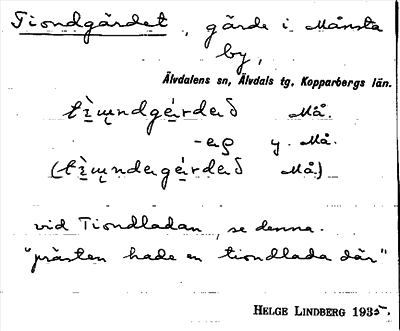 Tiondgärdet, gärde i Månsta
by,
Älvdalens sn, Älvdals tg. Kopparbergs län.
Må.
y. Må.
Må.)
vid Tiondladan, se denna.
"prästen hade en tiondlada där"
HELGE LINDBERG 1935.